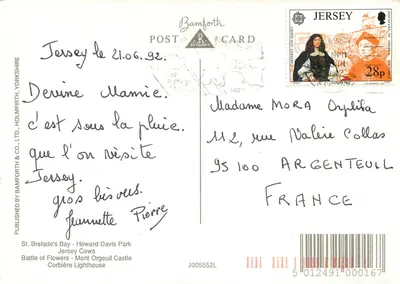 Bamforth
POST CARD
B
JERSEY
28p
Jersey le 21.06.92.
Devine Mamie.
c'est sous la pluie
que l'on visite
Jersey.
gros bisous.
Jeannette Pierre
Madame MORA Orphila
112, rue Valère Collas
95100 ARGENTEUIL
FRANCE
PUBLISHED BY BAMFORTH & CO., LTD., HOLMFIRTH, YORKSHIRE
St. Brelade's Bay - Howard Davis Park
Jersey Cows
Battle of Flowers - Mont Orgueil Castle
Corbière Lighthouse
J005552L
5 012491 000167